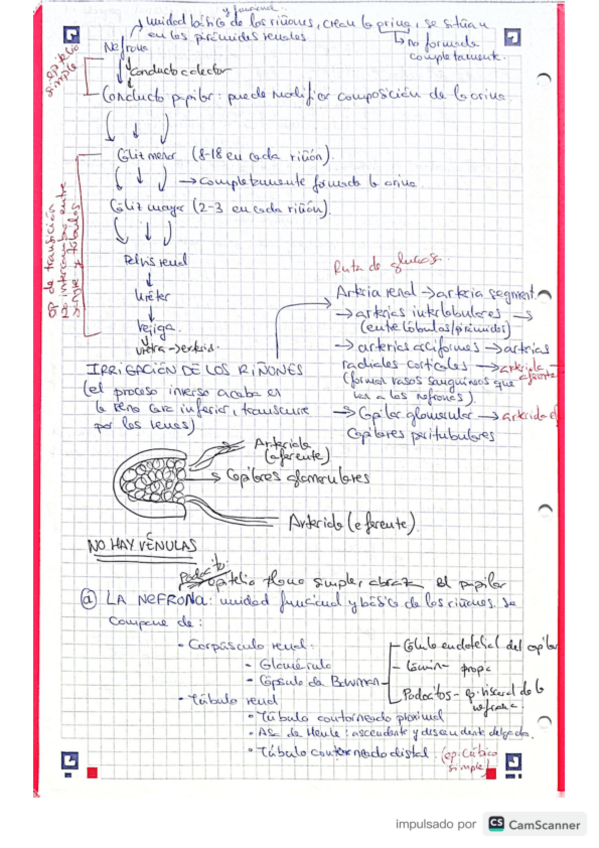 y funcional.
unidad básica de los riñones, crean la orina, se sitúan
en las pirámides renales
no formada
completamente.
Nefrona
epitelio
simple
Conducto colector
Conducto papilar: puede modificar composición de la orina.
Cáliz menor (8-18 en cada riñón).
→ completamente formada la orina.
Cáliz mayor (2-3 en cada riñón).
ep de transición
no intercambio entre
sangre y túbulos
Pelvis renal
Uréter
Vejiga.
uretra →
Ruta de glucosa.
Arteria renal → arteria segment.
→ arterias interlobulares →
(entre lóbulos/pirámides)
→ arterias arciformes → arterias
radiales corticales → arteriola
aferente
(forman vasos sanguíneos que
van a las nefronas)
→ Capilar glomerular → arteriola ef
Capilares peritubulares
IRRIGACIÓN DE LOS RIÑONES
(el proceso inverso acaba en
la vena cava inferior, transcurre
por las venas)
Arteriola
(aferente)
→ Capilares glomerulares
Arteriola (eferente).
NO HAY VÉNULAS
Podocito:
epitelio plano simple, abraza el
ⓐ LA NEFRONA: unidad funcional y básica de los riñones. Se
compone de:
- Corpúsculo renal:
- Glomérulo
- Cápsula de Bowman
- Célula endotelial del capilar
- Lámina propia
Podocitos - ep. visceral de la
nefrona.
- Túbulo renal
- Túbulo contorneado proximal
- Asa de Henle: ascendente y descendente delgada.
- Túbulo contorneado distal. (ep. cúbico
simple)
impulsado por CS CamScanner